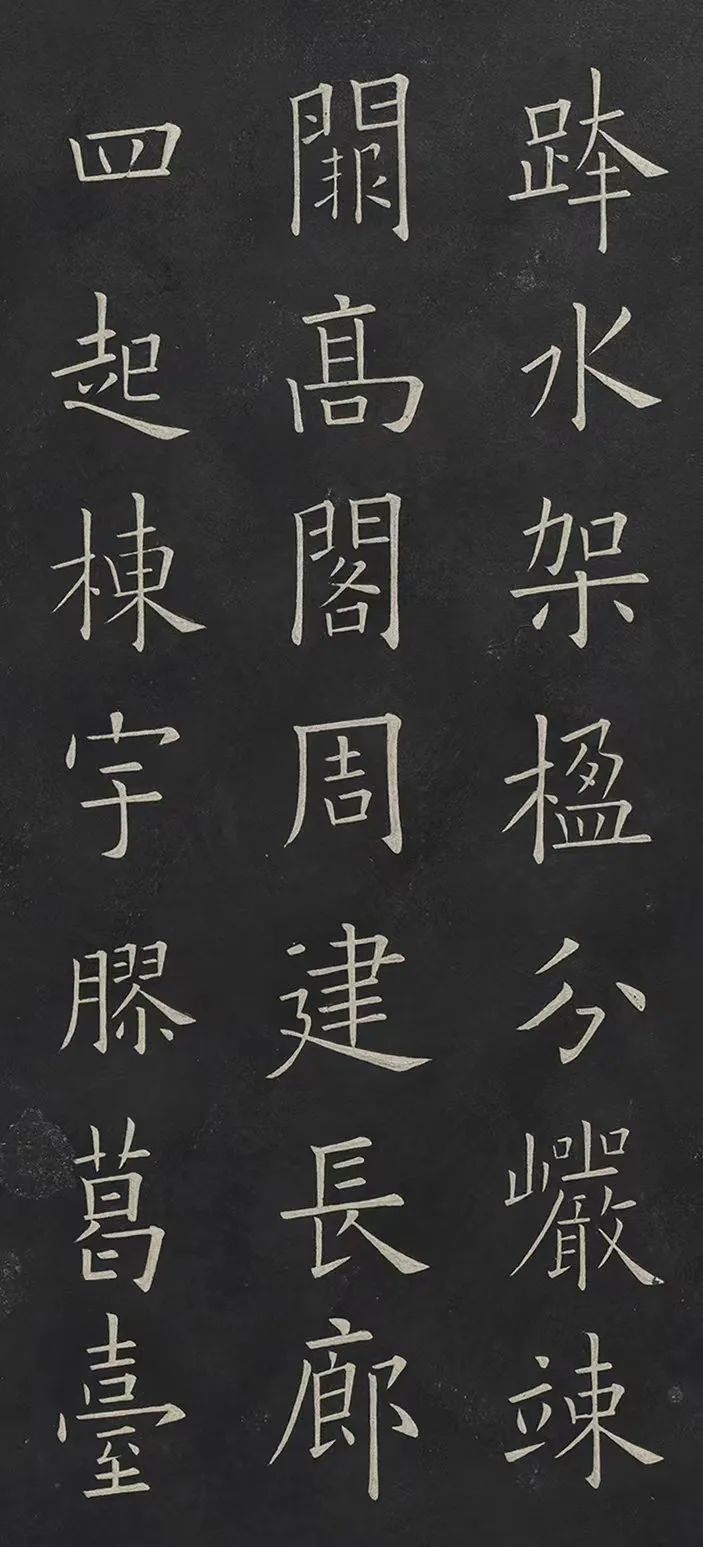 水架楹分巖竦
髙閣周建長廊
四起棟宇膠葛臺